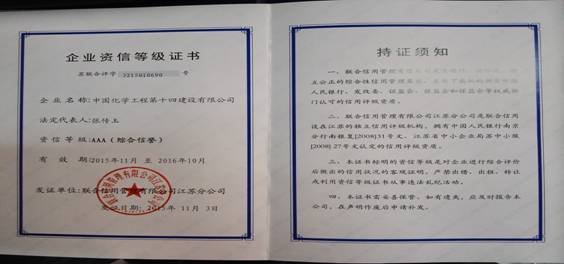 企业资信等级证书
苏联合评字 3215010690 号
企 业 名 称:中国化学工程第十四建设有限公司
法定代表人:张传玉
资 信 等 级:AAA(综合信誉)
有 效 期:2015年11月 至 2016年10月
发证单位:联合信用管理有限公司江苏分公司
2015年 11月 3日
持证须知
一、联合信用管理有限公司
立公正的综合性信用
人民银行、发改委、证监会、保监会
门认可的信用评级资质。
二、联合信用管理有限公司江苏分公司是联合信用
设在江苏的独立信用评级机构，拥有中国人民银行南京
分行南银复[2008]31号文、江苏省中小企业局苏中小服
[2008] 27号文认定的信用评级资质。
三、本证书标明的资信等级是对企业进行综合评价
后做出的信用状况的客观证明，严禁出借、出租、转让
或利用资信等级证书从事违法乱纪活动。
四、本证书需妥善保管，如有遗失，应及时报告本
公司，在声明作废后申请补发。